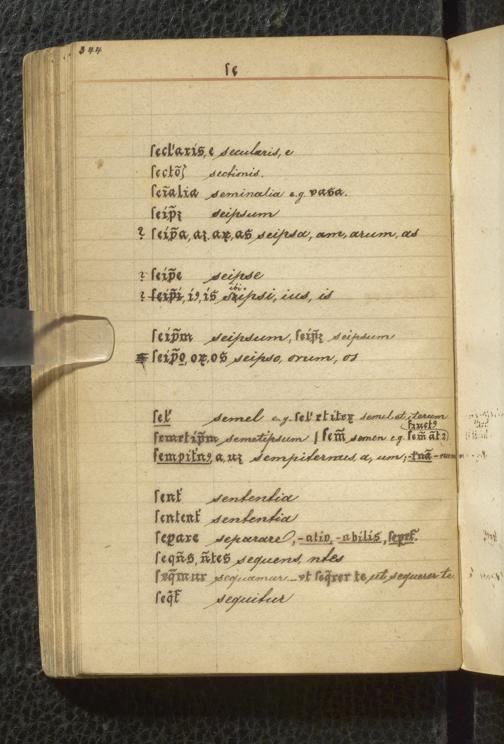 344
ſe
ſecl'aris, e secularis, e
ſectõſ sectionis.
ſeĩalia seminalia e.g. vasa.
ſeip̃ꝫ seipsum
? ſeip̃a, aꝫ, aꝝ, aS seipsa, am, arum, as
? ſeip̃e seipse
? ſeip̃i, iꝰ, iS seipsi, ius, is
ſeip̃m seipsum, ſeip̃ꝫ seipsum
ſeip̃o, oꝝ, oS seipso, orum, os
ſel' semel e.g. ſel' et iteꝝ semel et iterum
ſemetip̃m semetipsum ſem̃ semen e.g.
ſempit̃nꝰ, a, uꝫ sempiternus, a, um;
ſent̃ sententia
ſentent̃ sententia
ſepare separare, -ativ, -abilis,
ſeqñs, ñtes sequens, ntes
ſeq̃mur sequamur - vt ſeq̃rer te ut sequerer te
ſeq̃t̃ sequitur